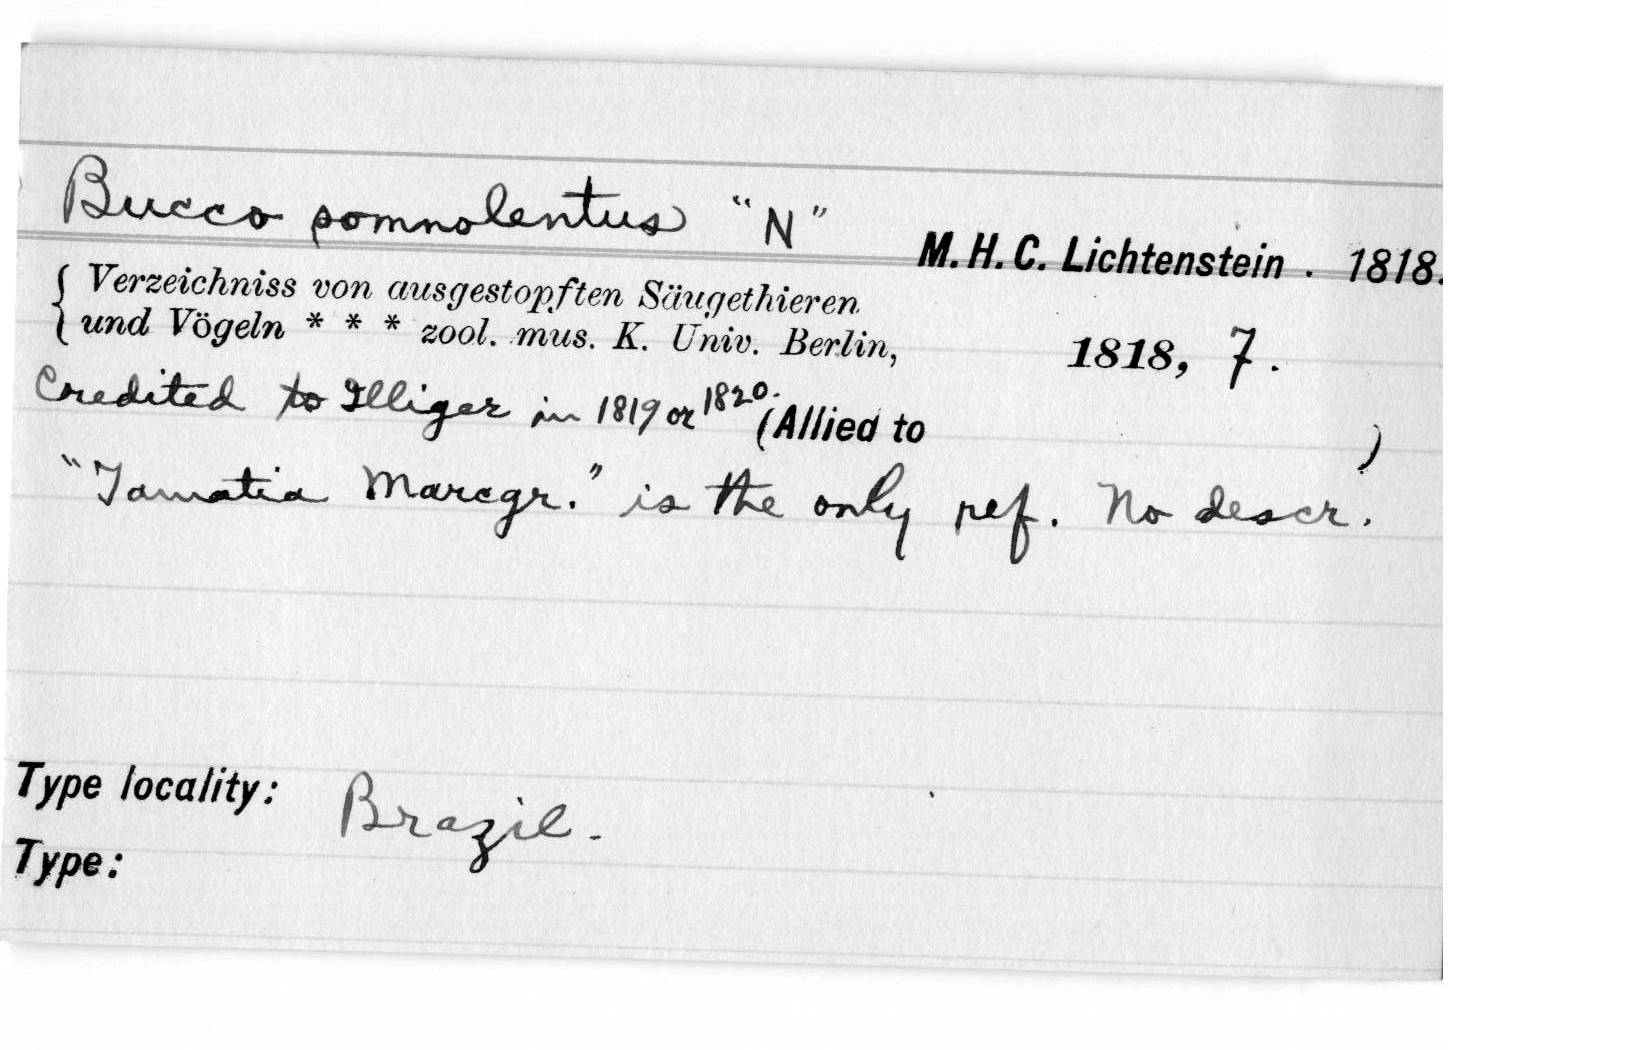 Bucco somnolentus "N"
M. H. C. Lichtenstein . 1818.
{ Verzeichniss von ausgestopften Säugethieren
und Vögeln * * * zool. mus. K. Univ. Berlin, 1818, 7.
Credited to Illiger in 1819 or 1820.
(Allied to )
"Tamatia Marcgr." is the only ref. No descr.
Type locality: Brazil.
Type: